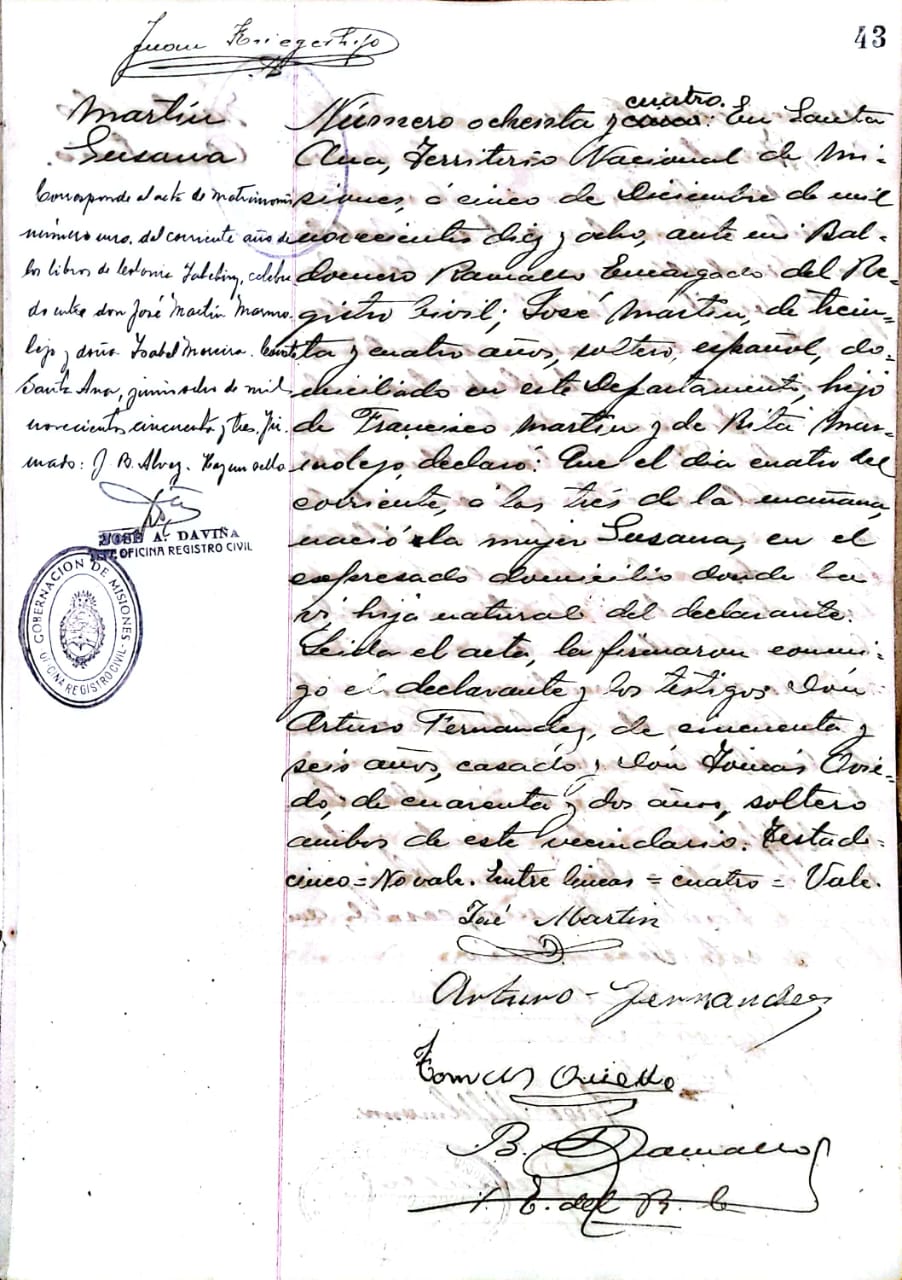 43
Juan Krieger hijo
Martín
Susana
Corresponde el acta de matrimonio
número uno, del corriente año de
los libros de Colonia, celebra
do entre don José Martin Marmo
lejo y doña Isabel Moreira.
Santa Ana, de mil
novecientos cincuenta y tres. Fir
mado: J. B. Alvez. Hay un sello
JOSÉ A. DAVIÑA
OFICINA REGISTRO CIVIL
GOBERNACION DE MISIONES
OFICINA REGISTRO CIVIL
cuatro.
Número ochenta y cinco: En Santa
Ana, Territorio Nacional de Mi-
siones, á cinco de Diciembre de mil
novecientos diez y ocho, ante mi Bal-
domero Ramallo Encargado del Re-
gistro Civil; José Martin, de trein-
ta y cuatro años, soltero, español, do-
miciliado en este Departamento, hijo
de Francisco Martin y de Rita Mar-
molejo, declaró: Que el dia cuatro del
corriente, á las tres de la mañana,
nació la mujer Susana, en el
expresado domicilio donde la
vi, hija natural del declarante.
Leida el acta, la firmaron conmi-
go el declarante y los testigos Dón
Arturo Fernandez, de cincuenta y
seis años, casado, y Dón Tomás Ovie-
do, de cuarenta y dos años, soltero
ambos de este vecindario. Testado-
cinco = No vale. Entre lineas = cuatro = Vale.
José Martin
Arturo - Fernandes
Tomas Oviedo
B. Ramallo
E. del R. C